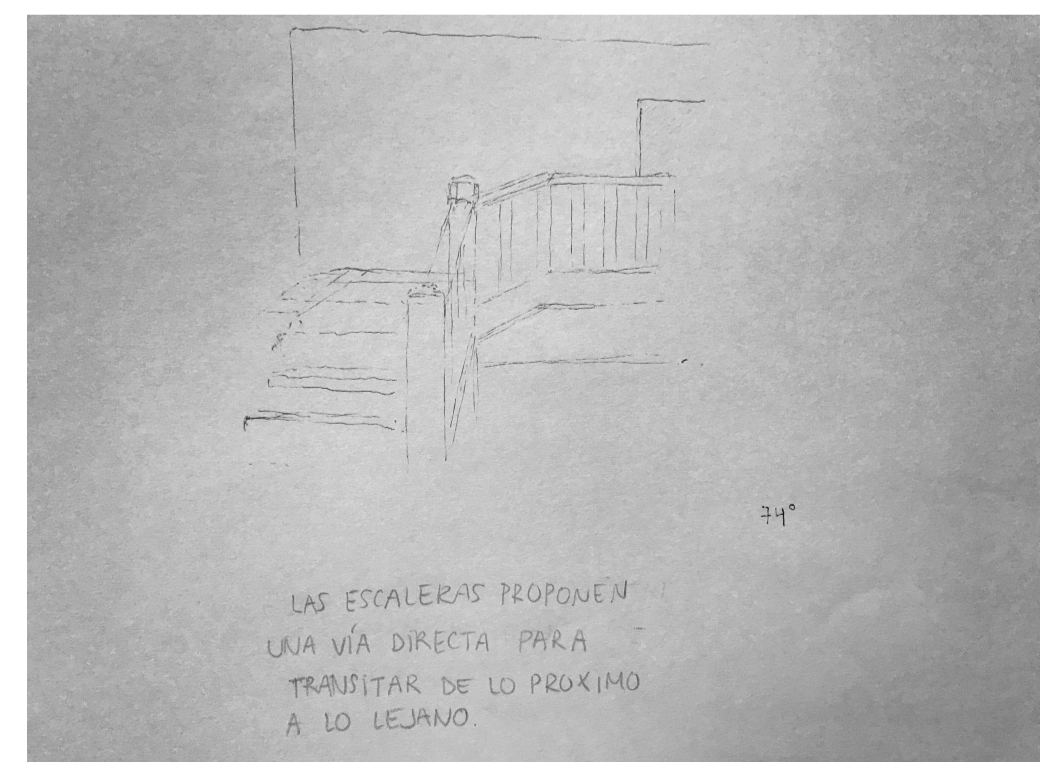 74°
LAS ESCALERAS PROPONEN
UNA VÍA DIRECTA PARA
TRANSITAR DE LO PROXIMO
A LO LEJANO.